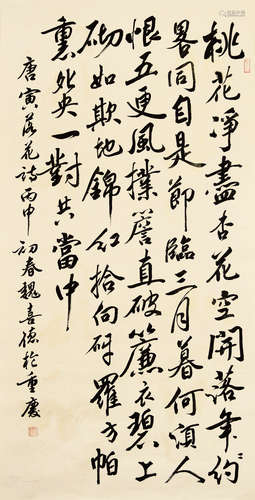 桃花淨盡杏花空開落年〻約
畧同自是節臨三月暮何須人
恨五更風撲簷直破簾衣碧上
砌如欺地錦紅拾向砑羅方帕
裏夗央一對共當中
唐寅落花詩丙申初春魏喜德於重慶